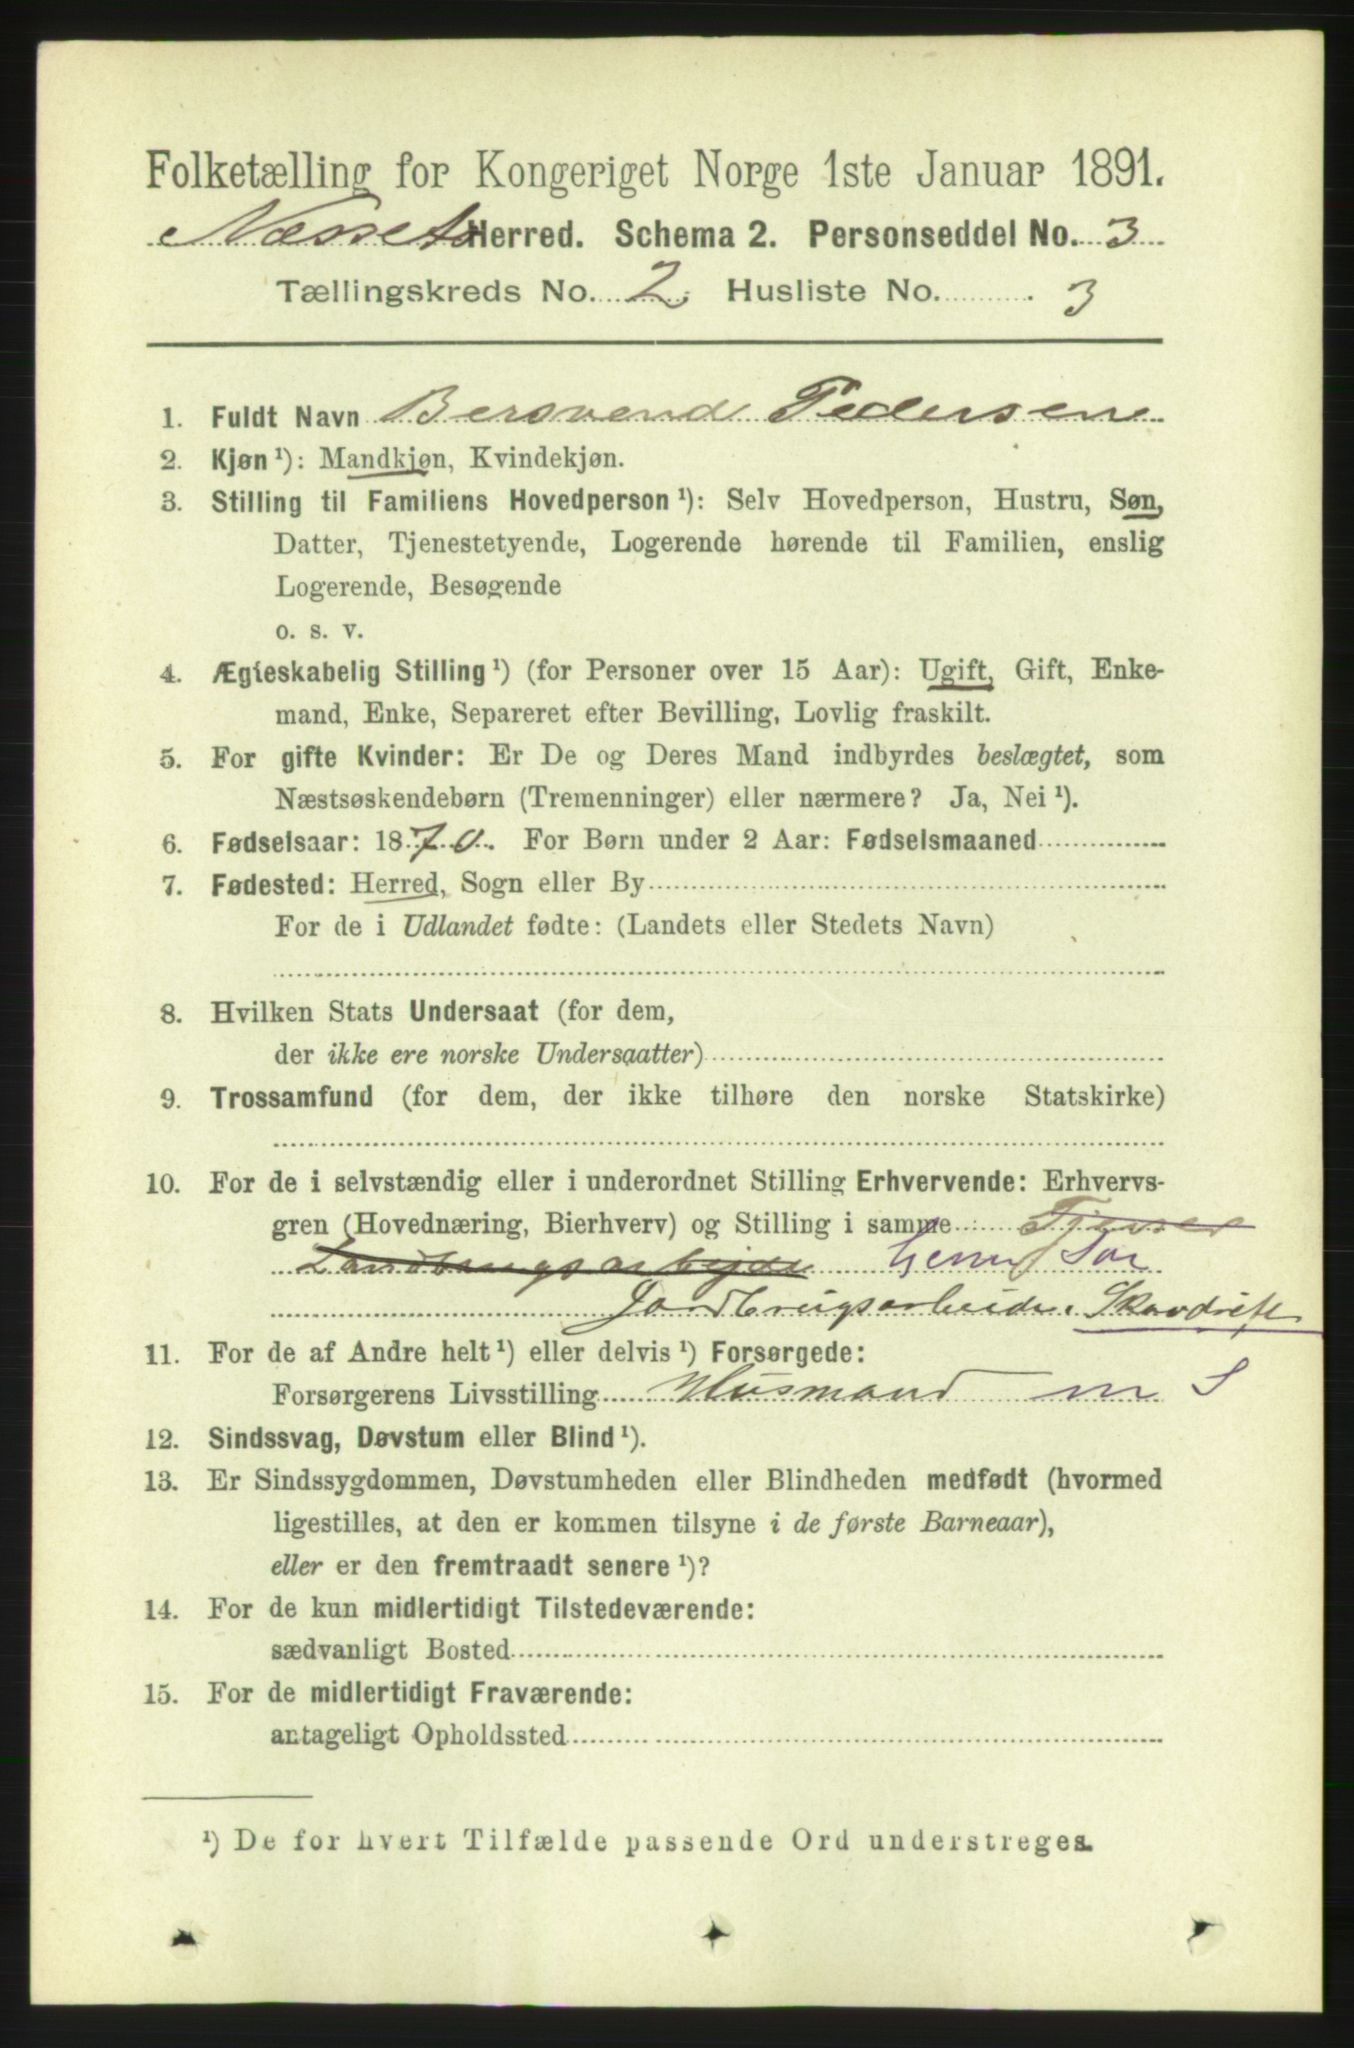 Folketælling for Kongeriget Norge 1ste Januar 1891.
Næssets Herred. Schema 2. Personseddel No. 3
Tællingskreds No. 2 Husliste No. 3
1. Fuldt Navn Bersvend Pedersen
2. Kjøn ¹): Mandkjøn, Kvindekjøn.
3. Stilling til Familiens Hovedperson ¹): Selv Hovedperson, Hustru, Søn,
Datter, Tjenestetyende, Logerende hørende til Familien, enslig
Logerende, Besøgende
o. s. v.
4. Ægteskabelig Stilling ¹) (for Personer over 15 Aar): Ugift, Gift, Enke-
mand, Enke, Separeret efter Bevilling, Lovlig fraskilt.
5. For gifte Kvinder: Er De og Deres Mand indbyrdes beslægtet, som
Næstsøskendebørn (Tremenninger) eller nærmere? Ja, Nei ¹).
6. Fødselsaar: 1870. For Børn under 2 Aar: Fødselsmaaned
7. Fødested: Herred, Sogn eller By
For de i Udlandet fødte: (Landets eller Stedets Navn)
8. Hvilken Stats Undersaat (for dem,
der ikke ere norske Undersaatter)
9. Trossamfund (for dem, der ikke tilhøre den norske Statskirke)
10. For de i selvstændig eller i underordnet Stilling Erhvervende: Erhvervs-
gren (Hovednæring, Bierhverv) og Stilling i samme
Jordbrugsarbeide. Skovdrift
11. For de af Andre helt ¹) eller delvis ¹) Forsørgede:
Forsørgerens Livsstilling Husmand m S
12. Sindssvag, Døvstum eller Blind ¹).
13. Er Sindssygdommen, Døvstumheden eller Blindheden medfødt (hvormed
ligestilles, at den er kommen tilsyne i de første Barneaar),
eller er den fremtraadt senere ¹)?
14. For de kun midlertidigt Tilstedeværende:
sædvanligt Bosted
15. For de midlertidigt Fraværende:
antageligt Opholdssted
¹) De for hvert Tilfælde passende Ord understreges.